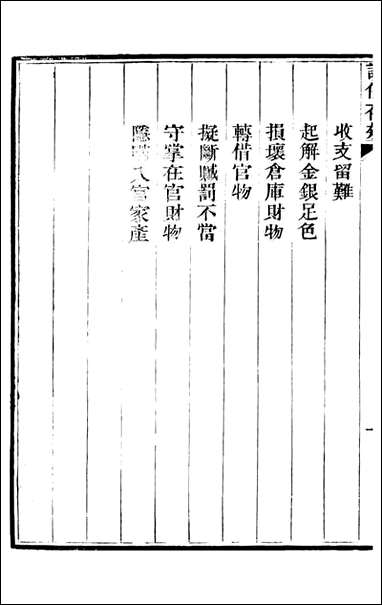 收支留難
起解金銀足色
損壞倉庫財物
轉借官物
擬斷贓罰不當
守掌在官財物
隱瞞入官家產